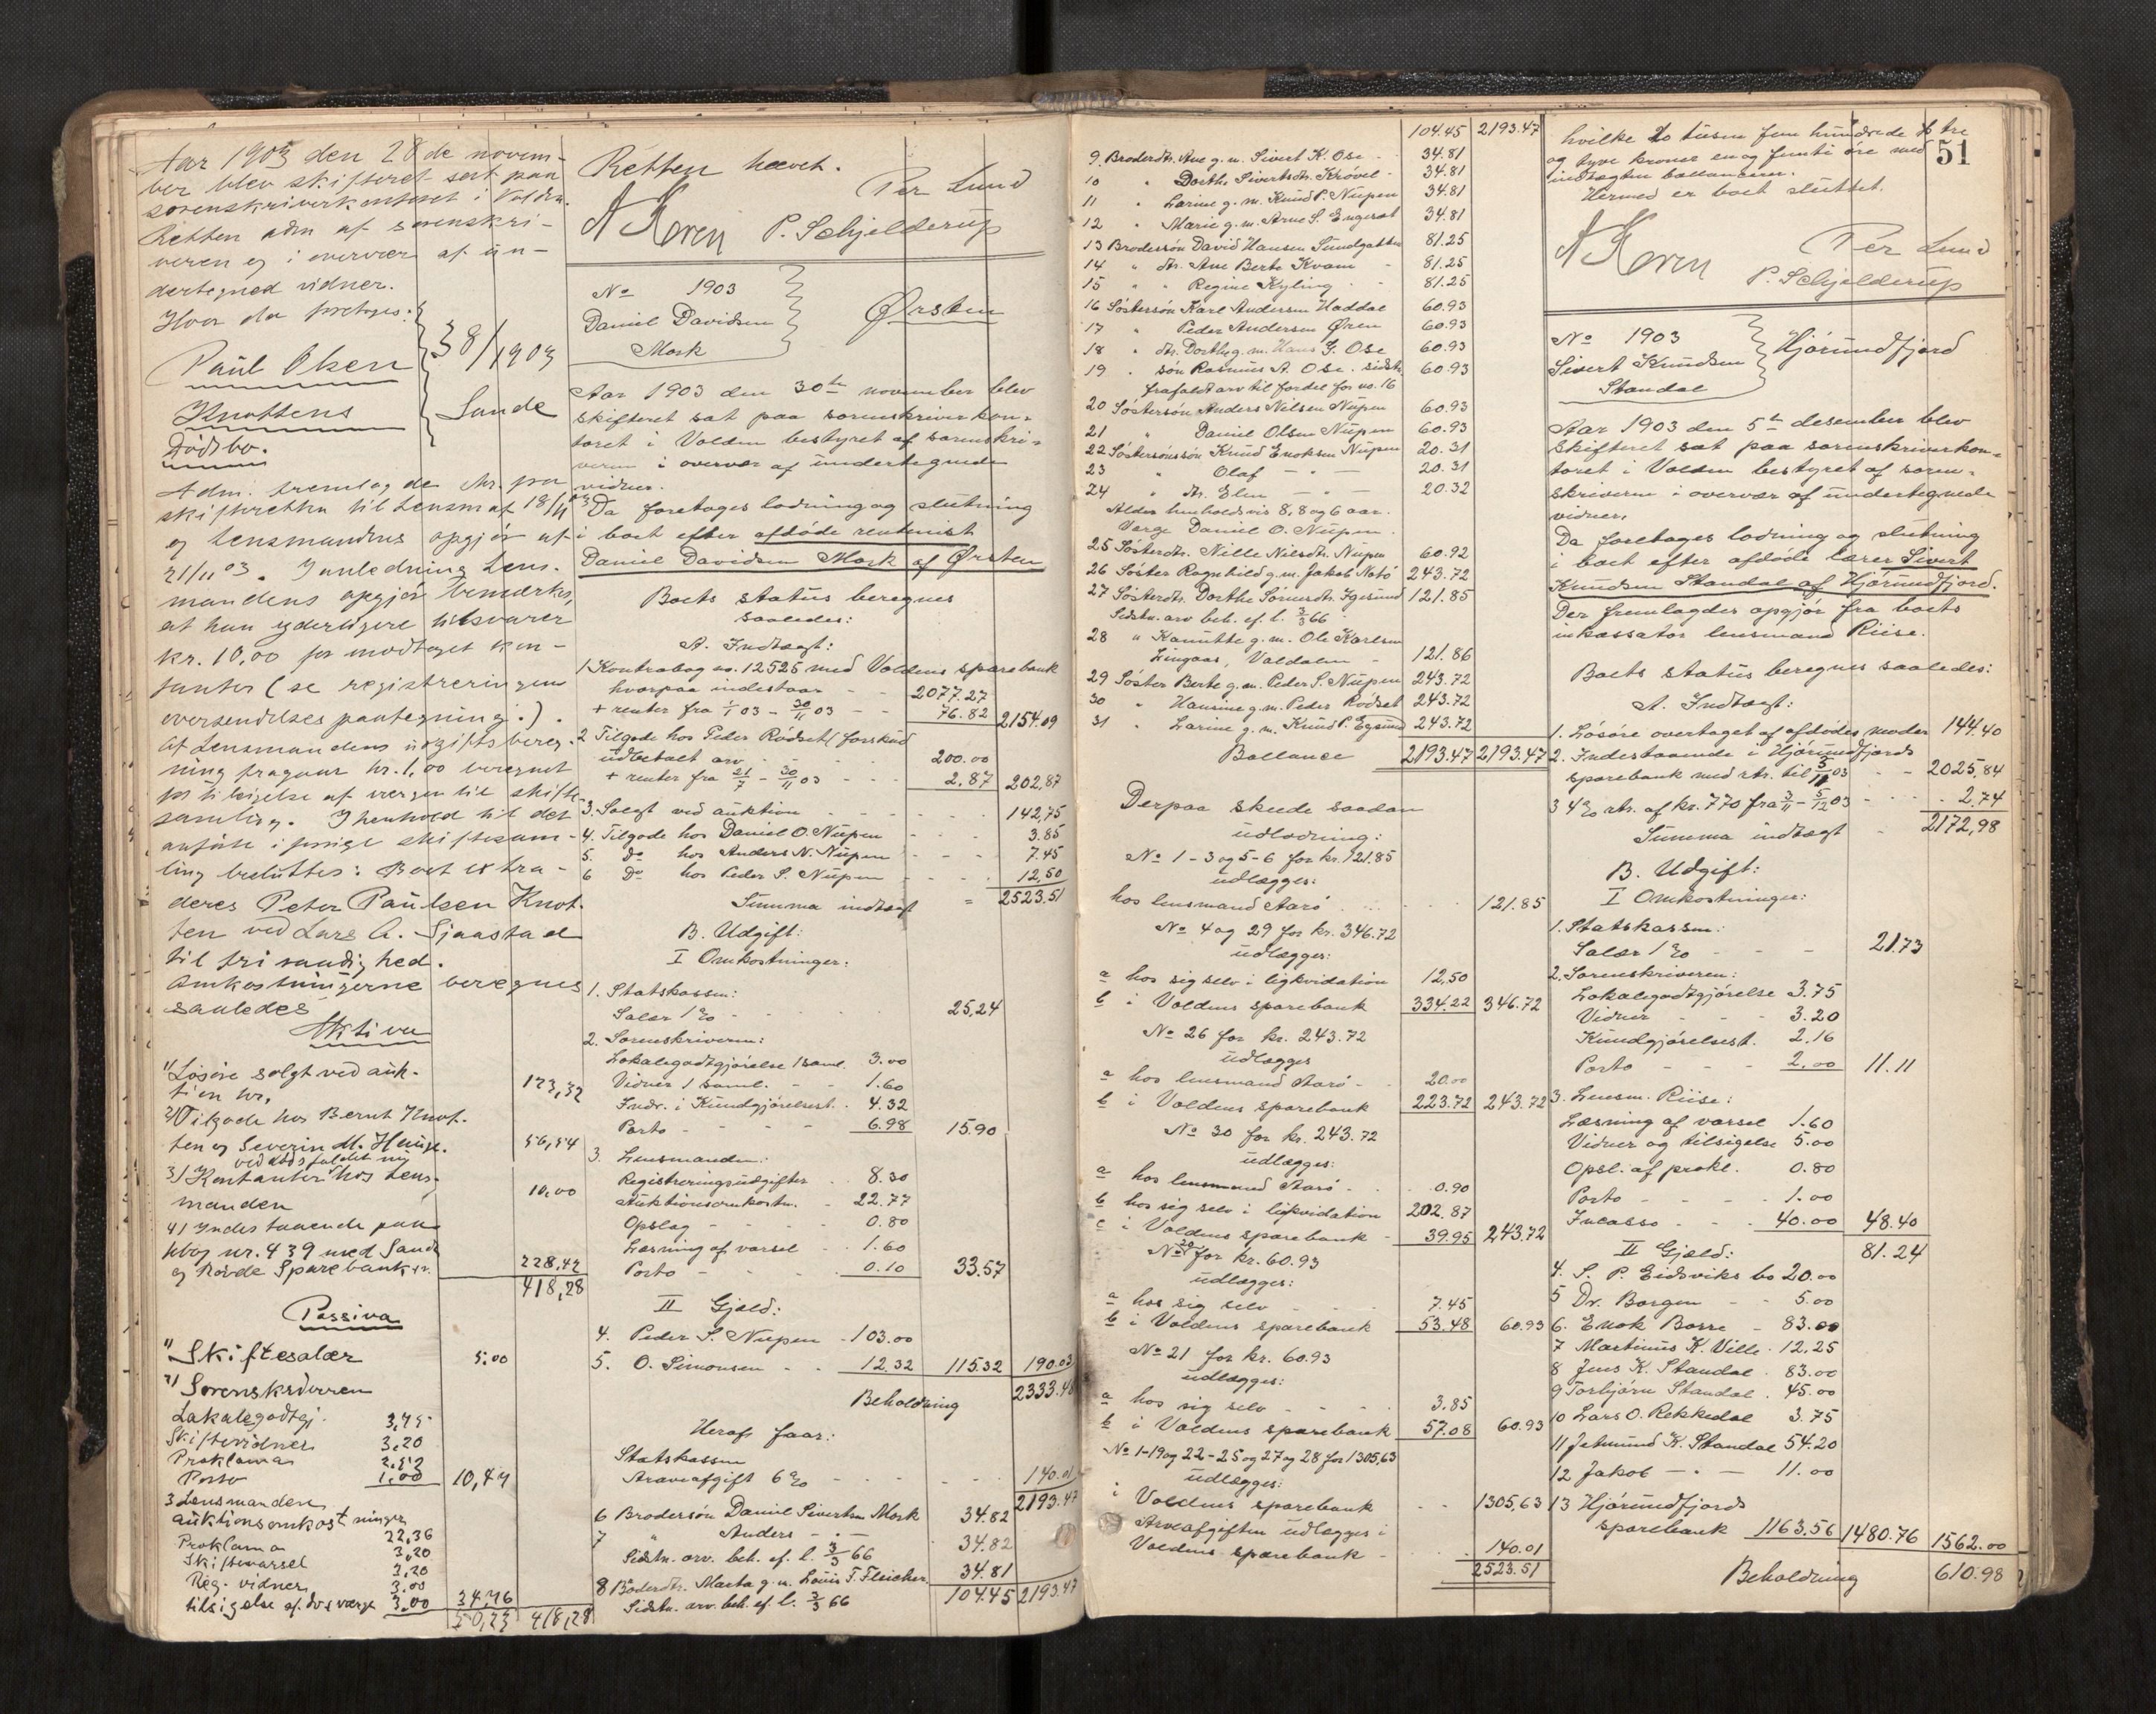 Aar 1903 den 28de novem-
ber blev skifteret sat paa
sorenskriverkontoret i Volden.
Retten adm af sorenskri-
veren og i overvær af un-
dertegned vidner.
Hvor da foretoges:
Paul Olsen
Knottens
Dödsbo.
38/1903
Sande
Adm. fremlagde skr. fra
skifteretten til Lensm af 18/11 03
og Lensmandens opgjör af
21/11 03. I anledning Lens-
mandens opgjör bemærkes,
at han yderligere tilsvarer
kr. 10,00 for modtaget kon-
tanter (se registreringen
oversendelses paategning.).
Af Lensmandens udgiftsbereg-
ning fragaar kr. 1,00 beregnet
for tilsigelse af vergen til skifte-
samling. I henhold til det
anförte i forrige skiftesam-
ling besluttes: Boet extra-
deres Peter Paulsen Knot-
ten ved Lars A. Sjaastad
til fri raadighed.
Omkostningerne beregnes
saaledes
Aktiva
1/ Lösöre solgt ved auk-
tion kr. 123,32
2/ Tilgode hos Bernt Knot-
ten og Severin M. Hauge. 56,54
ved dödsfaldet
3/ Kontanter hos Lens-
manden 10,00
4/ Indestaaende paa
kbog nr. 439 med Sande
og Rövde Sparebank kr. 228,42
418,28
Passiva
1/ Skiftesalær 5.00
2/ Sorenskriveren
Lokalegodtgj. 3,75
Skiftevidner 3,20
Proklama 2,52
Porto 1,00 10,47
3 Lensmanden
auktionsomkostninger 22,36
Proklama 3,20
Skiftevarsel 3,20
Reg. vidner 3.00
tilsigelse af værge 3,00 34,76
50,23 418,28
Retten hævet.
A Koren
Per Lund
P. Schjelderup
No 1903
Daniel Davidsen
Mork
Örsten
Aar 1903 den 30te november blev
skifteret sat paa sorenskriverkon-
toret i Volden bestyret af sorenskri-
veren i overvær af undertegnede
vidner.
Da foretages lodning og slutning
i boet efter afdöde rentenist
Daniel Davidsen Mork af Örsten
Boets status beregnes
saaledes:
A. Indtægt:
1 Kontrabog no. 12525 med Voldens sparebank
hvorpaa indestaar - - 2077.27
+ renter fra 1/1 03 - 30/11 03 - - 76.82 2154.09
2 Tilgode hos Peder Rödset forskud
udbetalt arv - - - - 200.00
+ renter fra 21/7 - 30/11 03 - - - 2.87 202,87
3. Solgt ved auktion - - - - - 142,75
4. Tilgode hos Daniel O. Nupen - - - 3.85
5. do hos Anders N. Nupen - - - 7.45
6 Do hos Peder S. Nupen - - - 12,50
Summa indtægt = 2523.51
B. Udgift:
I Omkostninger:
1. Statskassen:
Salær 1 % - - - - - 25,24
2. Sorenskriveren:
Lokalegodtgjörelse 1 saml. 3.00
Vidner 1 saml. - - 1.60
Indr. i Kundgjörelsest. . 4.32
Porto - - - - 6.98 15.90
3. Lensmanden:
Registreringsudgifter - 8.30
Auktionsomkostn. - 22.77
Opslag - - - - 0.80
Læsning af varsel - . 1.60
Porto - - - - 0.10 33.57
II Gjæld:
4. Peder S. Nupen - 103.00
5. O. Simonsen - - 12.32 115.32 190.03
Beholdning 2333.48
Heraf faar:
Statskassen
Arveafgift 6 % - - - - - 140.01
2193.47
6 Brodersön Daniel Sivertsen Mork 34.82
7 " Anders - " - 34.82
Sidstn. arv. beh. ef. l. 3/3 66
8 Broderdtr. Marta g. m. Louis T. Fleicher 34.81
Sidstn. arv. beh. ef. l. 3/3 66 104.45 2193.47
51
104.45 2193.47
9. Broderdtr. Ane g. m. Sivert K. Ose - 34.81
10 " Dorthe Sivertsdtr. Krövel - 34.81
11 " Larine g. m. Knud P. Nupen 34.81
12 " Marie g. m. Arne S. Engeset 34.81
13 Brodersön David Hansen Sundgatten 81.25
14 " dtr. Ane Berte Kvam - 81.25
15 " " Regine Kyling - - 81.25
16 Söstersön Karl Andersen Haddal 60.93
17 " Peder Andersen Ören 60.93
18 " dtr. Dorthe g. m. Hans G. Ose 60.93
19 " sön Rasmus A. Ose. sidstn. 60.93
frafaldt arv til fordel for no. 16
20 Söstersön Anders Nilsen Nupen 60.93
21 " Daniel Olsen Nupen 60.93
22 Söstersönssön Knud Enoksen Nupen 20.31
23 " Olaf - " - 20.31
24 " dtr. Elen - " - 20.32
Alder henholdsvis 8, 8 og 6 aar.
Verge Daniel O. Nupen.
25 Sösterdtr. Nille Nilsdtr. Nupen 60.92
26 Söster Ragnhild g. m. Jakob Natö 243.72
27 Sösterdtr. Dorthe Sörensdtr. Egesund 121.85
Sidstn. arv beh. ef. l. 3/3 66
28 " Kanutte g. m. Ole Karlsen
Lingaas, Valdalen - 121.86
29 Söster Berte g. m. Peder S. Nupen 243.72
30 " Hansine g. m. Peder Rödset 243.72
31 " Larine g. m. Knud P. Egsund 243.72
Ballance 2193.47 2193.47
Derpaa skede saadan
udlodning:
No 1 - 3 og 5 - 6 for kr. 121.85
udlægges:
hos lensmand Aarö - - - 121.85
No 4 og 29 for kr. 346.72
udlægges:
a hos sig selv i ligkvidation 12,50
b i Voldens sparebank 334.22 346.72
No 26 for kr. 243.72
udlægges
a hos lensmand Aarö - - 20.00
b i Voldens sparebank 223.72 243.72
No 30 for kr. 243.72
udlægges:
a hos lensmand Aarö - - 0.90
b hos sig selv i likvidation 202.87
c i Voldens sparebank - 39.95 243.72
No 20 for kr. 60.93
udlægges:
a hos sig selv - - - 7.45
b i Voldens sparebank 53.48 60.93
No 21 for kr. 60.93
udlægges:
a hos sig selv - - - 3.85
b i Voldens sparebank 57.08 60.93
No 1-19 og 22-25 og 27 og 28 for 1305,63
udlægges:
i Voldens sparebank - - 1305,63
Arveafgiften udlægges i
Voldens sparebank - - 140.01
2523.51
hvilke to tusen fem hundrede tre
og tyve kroner en og femti öre med
indtægten ballancerer.
Hermed er boet sluttet.
A Koren
Per Lund
P. Schjelderup
No 1903
Sivert Knudsen
Standal
Hjörundfjord
Aar 1903 den 5te desember blev
skifteret sat paa sorenskriverkon-
toret i Volden bestyret af soren-
skriveren i overvær af undertegnede
vidner.
Da foretages lodning og slutning
i boet efter afdöde lærer Sivert
Knudsen Standal af Hjörundfjord.
Der fremlagdes opgjör fra boets
inkassator lensmand Riise.
Boets status beregnes saaledes:
A. Indtægt:
1. Lösöre overtaget af afdödes moder 144.40
2. Indestaaende i Hjörundfjords
sparebank med rtr. til 3/11 03 - - 2025,84
3 4 % rtr. af kr. 770 fra 3/11 - 5/12 03 - - 2.74
Summa indtægt - 2172,98
B. Udgift:
I Omkostninger:
1. Statskassen:
Salær 1 % - - - 21.73
2. Sorenskriveren:
Lokalegodtgjörelse 3.75
Vidner - - - 3.20
Kundgjörelsest. 2.16
Porto - - - 2,00 11.11
3. Lensm. Riise:
Læsning af varsel 1.60
Vidner og tilsigelse 5.00
Opsl. af prokl. 0.80
Porto - - - - 1.00
Incasso - - - 40.00 48.40
II Gjæld: 81.24
4. S. P. Eidsviks bo 20.00
5 Dr. Borgen - - 5.00
6. Enok Borre - 83.00
7 Martinus K. Ville . 12,25
8 Jens K. Standal . 83.00
9 Torbjörn Standal . 45.00
10 Lars O. Rekkedal 3.75
11 Jetmund K. Standal 54.20
12 Jakob - " - 11.00
13 Hjörundfjords
sparebank 1163.56 1480.76 1562.00
Beholdning 610.98